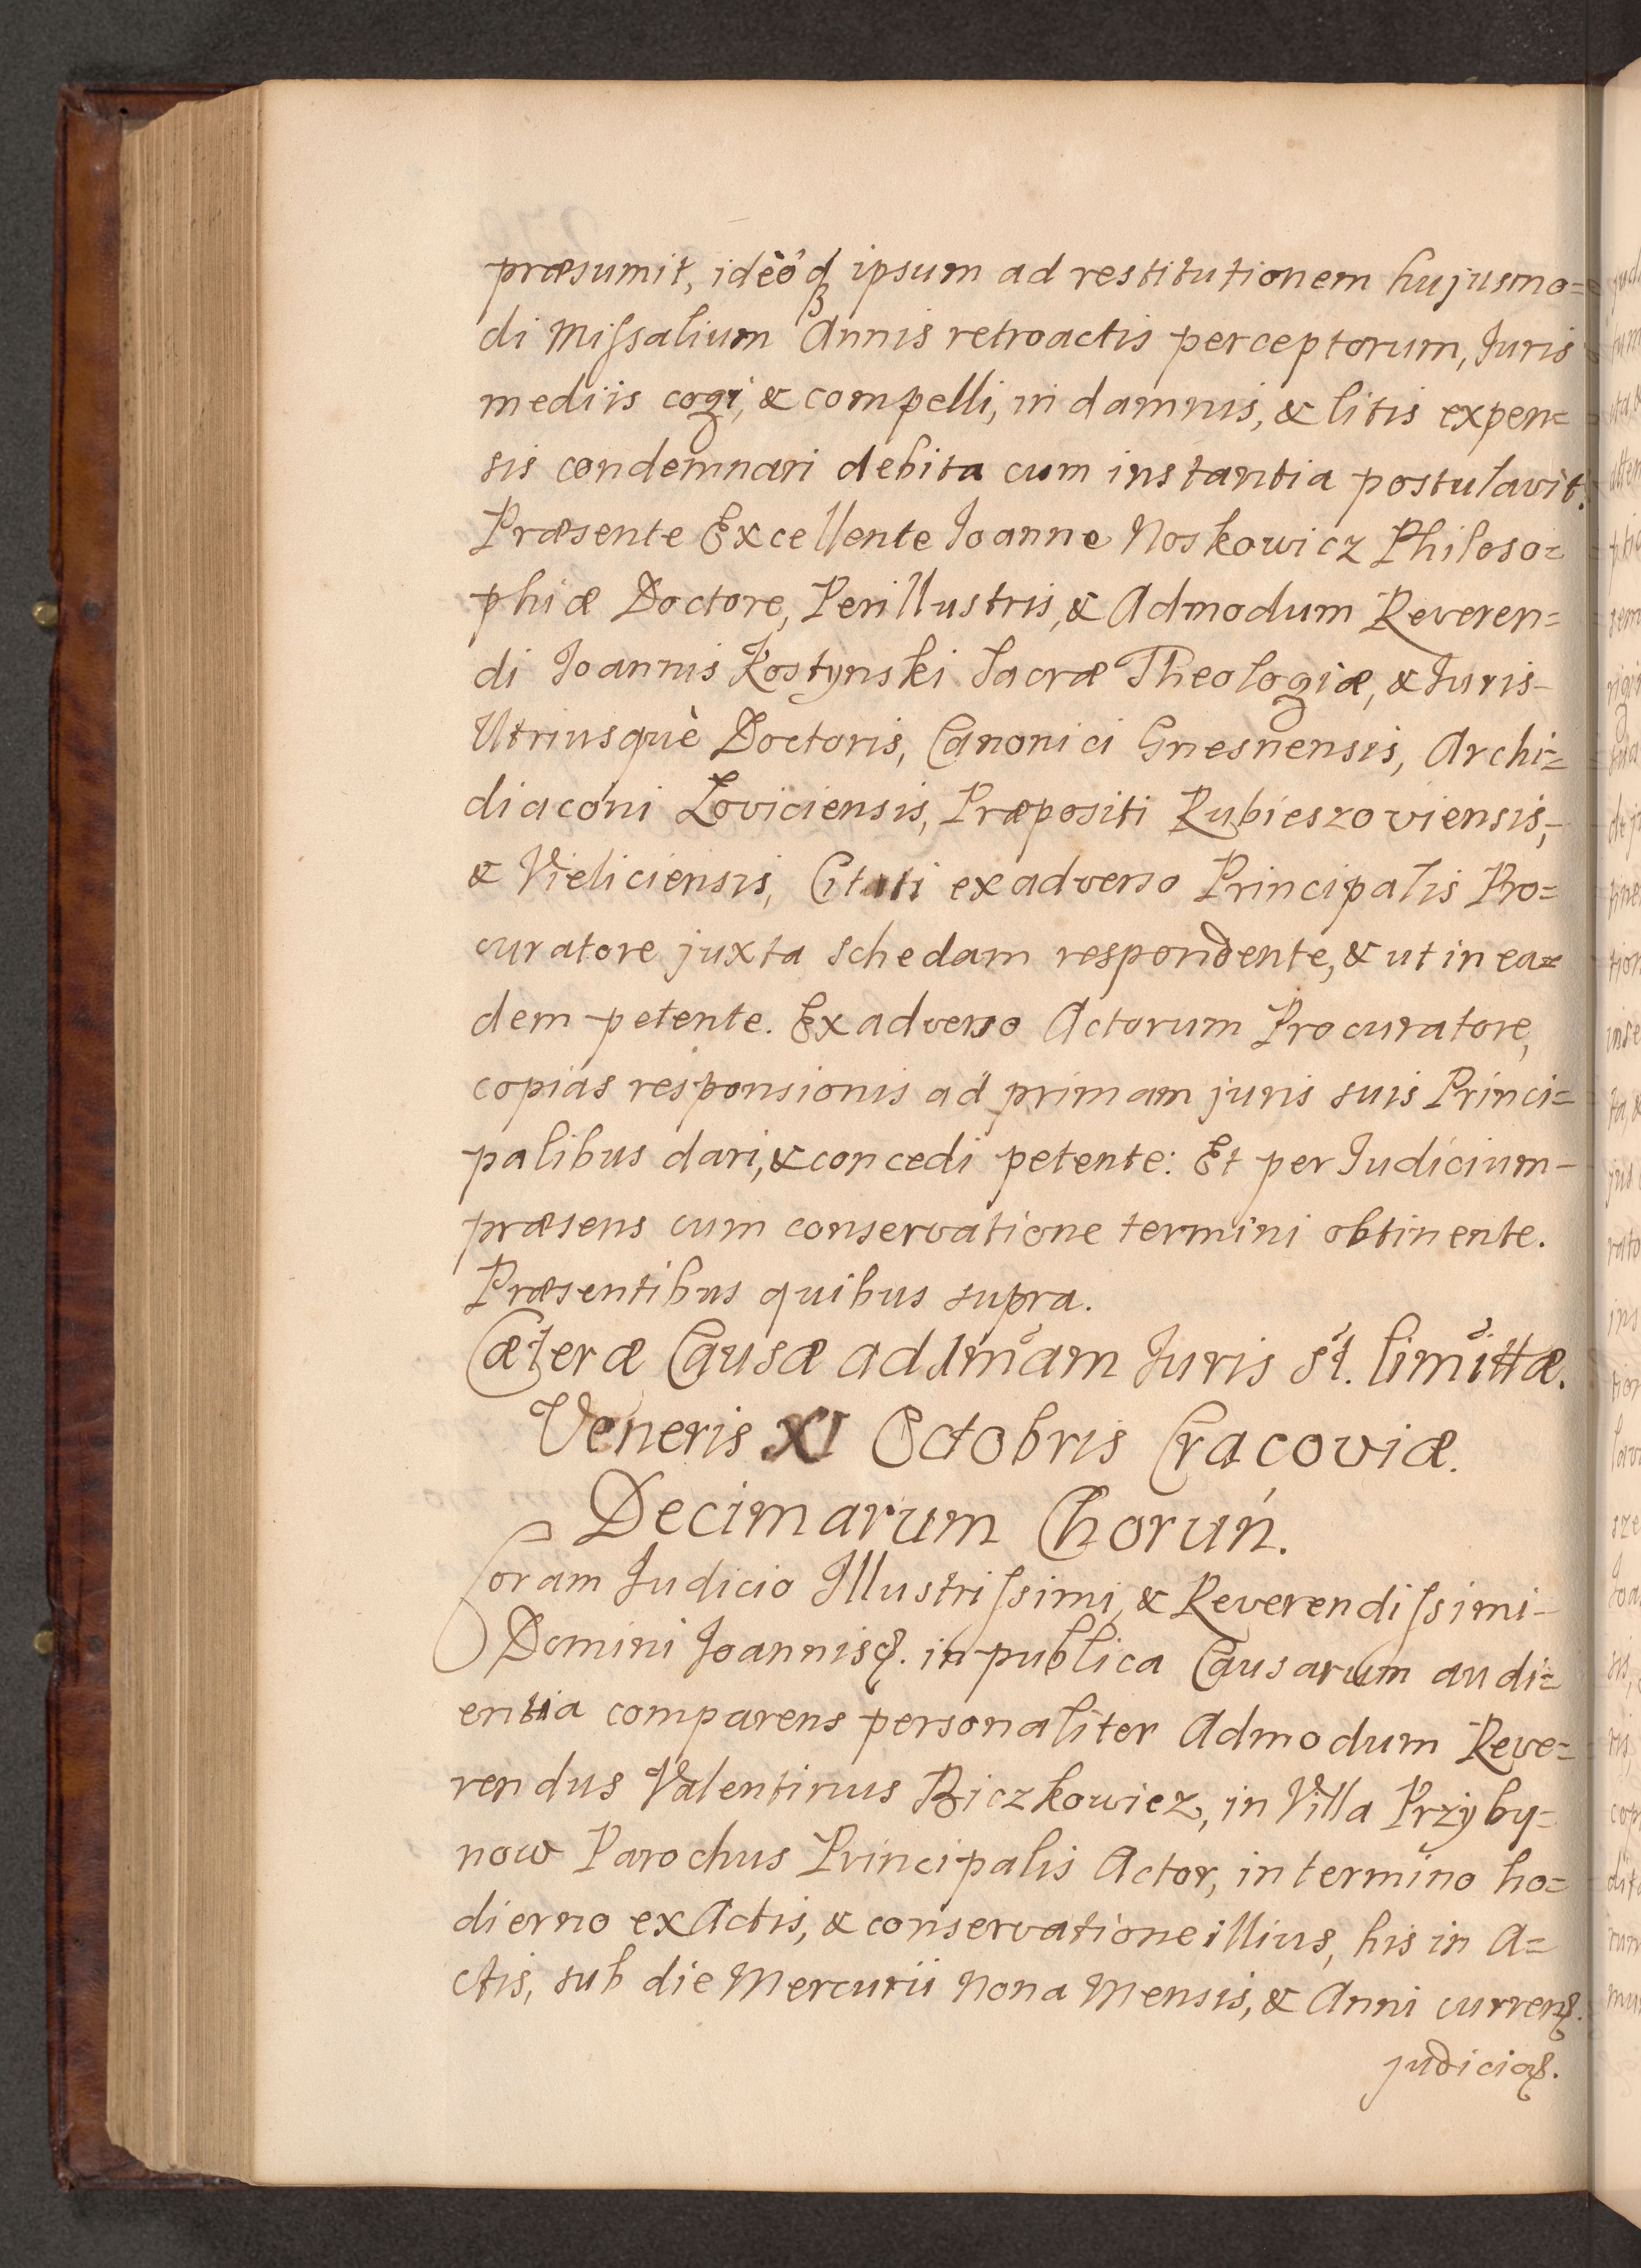 præsumit, ideoq́ꝫ ipsum ad restitutionem hujusmo=
di Miſsalium Annis retroactis perceptorum, Juris
mediis cogi, & compelli, in damnis, & litis expen=
sis condemnari debita cum instantia postulavit.
Præsente Excellente Joanne Noskowicz Philoso=
phiæ Doctore, Perillustris, & Admodum Reveren=
di Joannis Kostynski Sacræ Theologiæ, & Juris-
Utriusquè Doctoris, Canonici Gnesnensis, Archi=
diaconi Loviciensis, Præpositi Rubieszoviensis,-
& Vieliciensis, Citati exadverso Principalis Pro=
curatore juxta schedam respondente, & ut in ea=
dem petente. Exadverso Actorum Procuratore,
copias responsionis ad primam juris suis Princi=
palibus dari, & concedi petente: Et per Judicium-
præsens cum conservatione termini obtinente.
Præsentibus quibus supra.
Cæteræ Causæ ad 1mam Juris st. limittæ.
Veneris XI Octobris Cracoviæ.
Decimarum Chorun.
Coram Judicio Illustriſsimi, & Reverendiſsimi-
Domini Joannis &. in publica Causarum audi=
entia comparens personaliter Admodum Reve=
rendus Valentinus Biczkowicz, in Villa Przyby=
now Parochus Principalis Actor, in termino ho=
dierno ex Actis, & conservatione illius, his in A=
ctis, sub die Mercurii Nona Mensis, & Anni curren&.
judicia&.